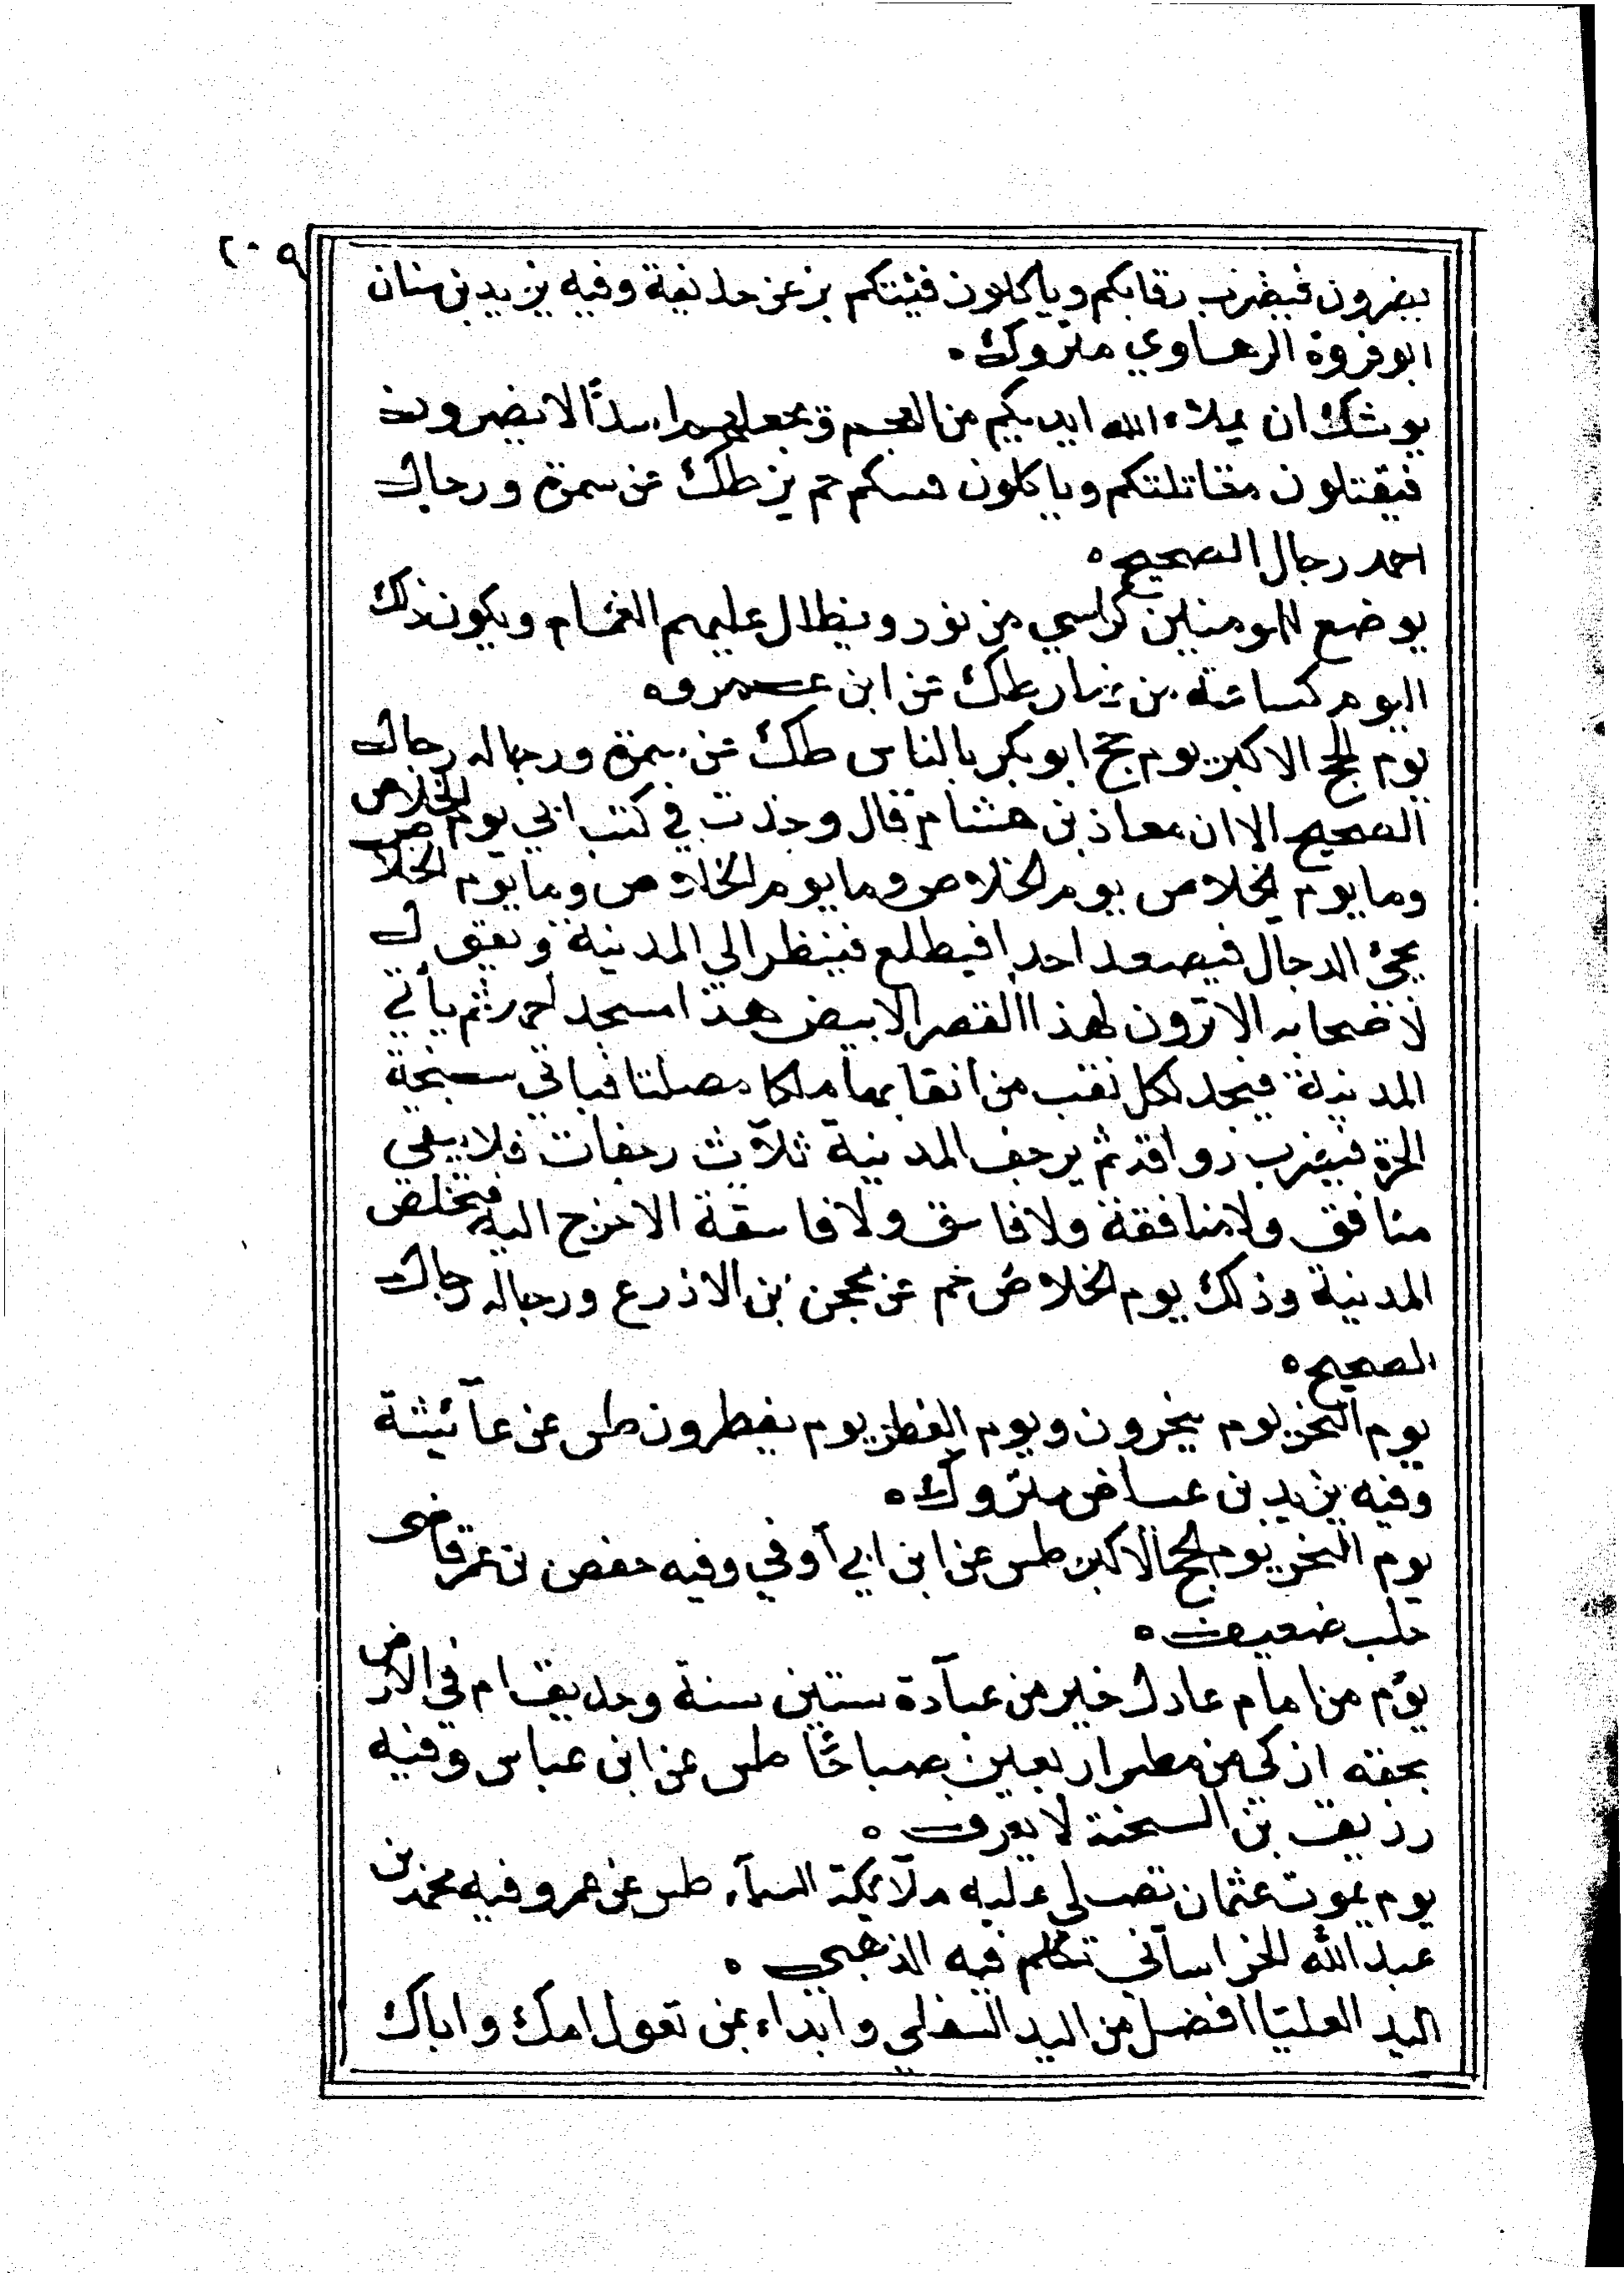 ٢٠٩
يضرون فيضرب رقابكم وياكلون فيئتكم بز عن حذيفة وفيه يزيد بن سنان
ابو فروة الرهاوي متروك ه
يوشك ان يملاء الله ايديكم من العجم ويجعلهم اسدًا لا يضرون
فيقتلون مقاتلتكم وياكلون فيكم حم بز طك عن سمرة ورجال
احمد رجال الصحيح ه
يوضع للمومنين كراسي من نور ويظلل عليهم الغمام ويكون ذلك
اليوم كساعة من نهار طك عن ابن عمرو ه
يوم الحج الاكبر يوم حج ابو بكر بالناس طك عن سمرة ورجاله رجال
الصحيح الا ان معاذ بن هشام قال وجدت في كتب ابي يوم الخلاص
وما يوم الخلاص يوم الخلاص وما يوم الخلاص وما يوم الخلاص
يجئ الدجال فيصعد احدا فيطلع فينظر الي المدينة ويقول
لاصحابه الا ترون لهذا القصر الابيض هذا مسجد احمد ثم يأتي
المدينة فيجد لكل نقب من انقابها ملكا مصلتا فياتي سبخة
الجرف فيضرب رواقه ثم يرجف المدينة ثلاث رجفات فلا يبقي
منافق ولا منافقة ولا فاسق ولا فاسقة الا خرج اليه فتخلص
المدينة وذلك يوم الخلاص حم عن محجن بن الاذرع ورجاله رجال
الصحيح ه
يوم النحر يوم ينحرون ويوم الفطر يوم يفطرون طس عن عآئيشة
وفيه يزيد بن عياض متروك ه
يوم النحر يوم الحج الاكبر طس عن ابن ابي آوفي وفيه حفص بن عمر قاضى
حلب ضعيف ه
يوم من امام عادل خير من عبآدة ستين سنة وحد يقام في الارض
بحقه ازكي من مطر اربعين صباحًا طس عن ابن عباس وفيه
رزيق بن السخنة لا يعرف ه
يوم يموت عثمان تصلي عليه ملآيكة السمآء طس عن عمر وفيه محمد بن
عبد الله الخراساني تكلم فيه الذهبي ه
اليد العليا افضل من اليد السفلي وابداء بمن تعول امك واباك